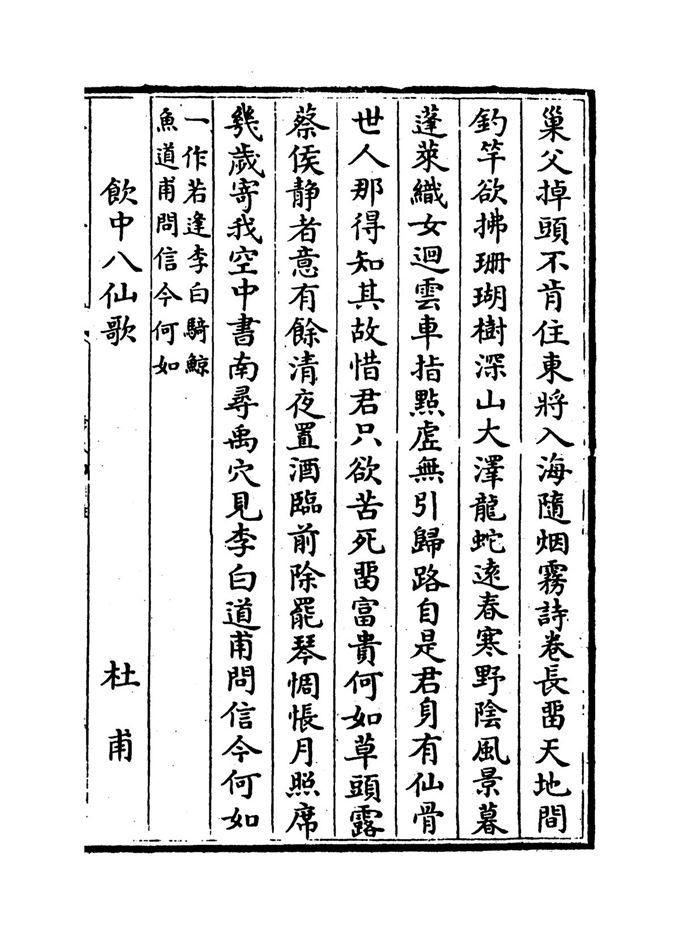 巢父掉頭不肯住東將入海隨烟霧詩卷長畱天地間
釣竿欲拂珊瑚樹深山大澤龍蛇逺春寒野陰風景暮
蓬萊織女迴雲車指點虛無引歸路自是君身有仙骨
世人那得知其故惜君只欲苦死畱富貴何如草頭露
蔡侯静者意有餘清夜置酒臨前除罷琴惆悵月照席
幾歲寄我空中書南尋禹穴見李白道甫問信今何如
一作若逢李白騎鯨
魚道甫問信今何如
飲中八仙歌 杜甫